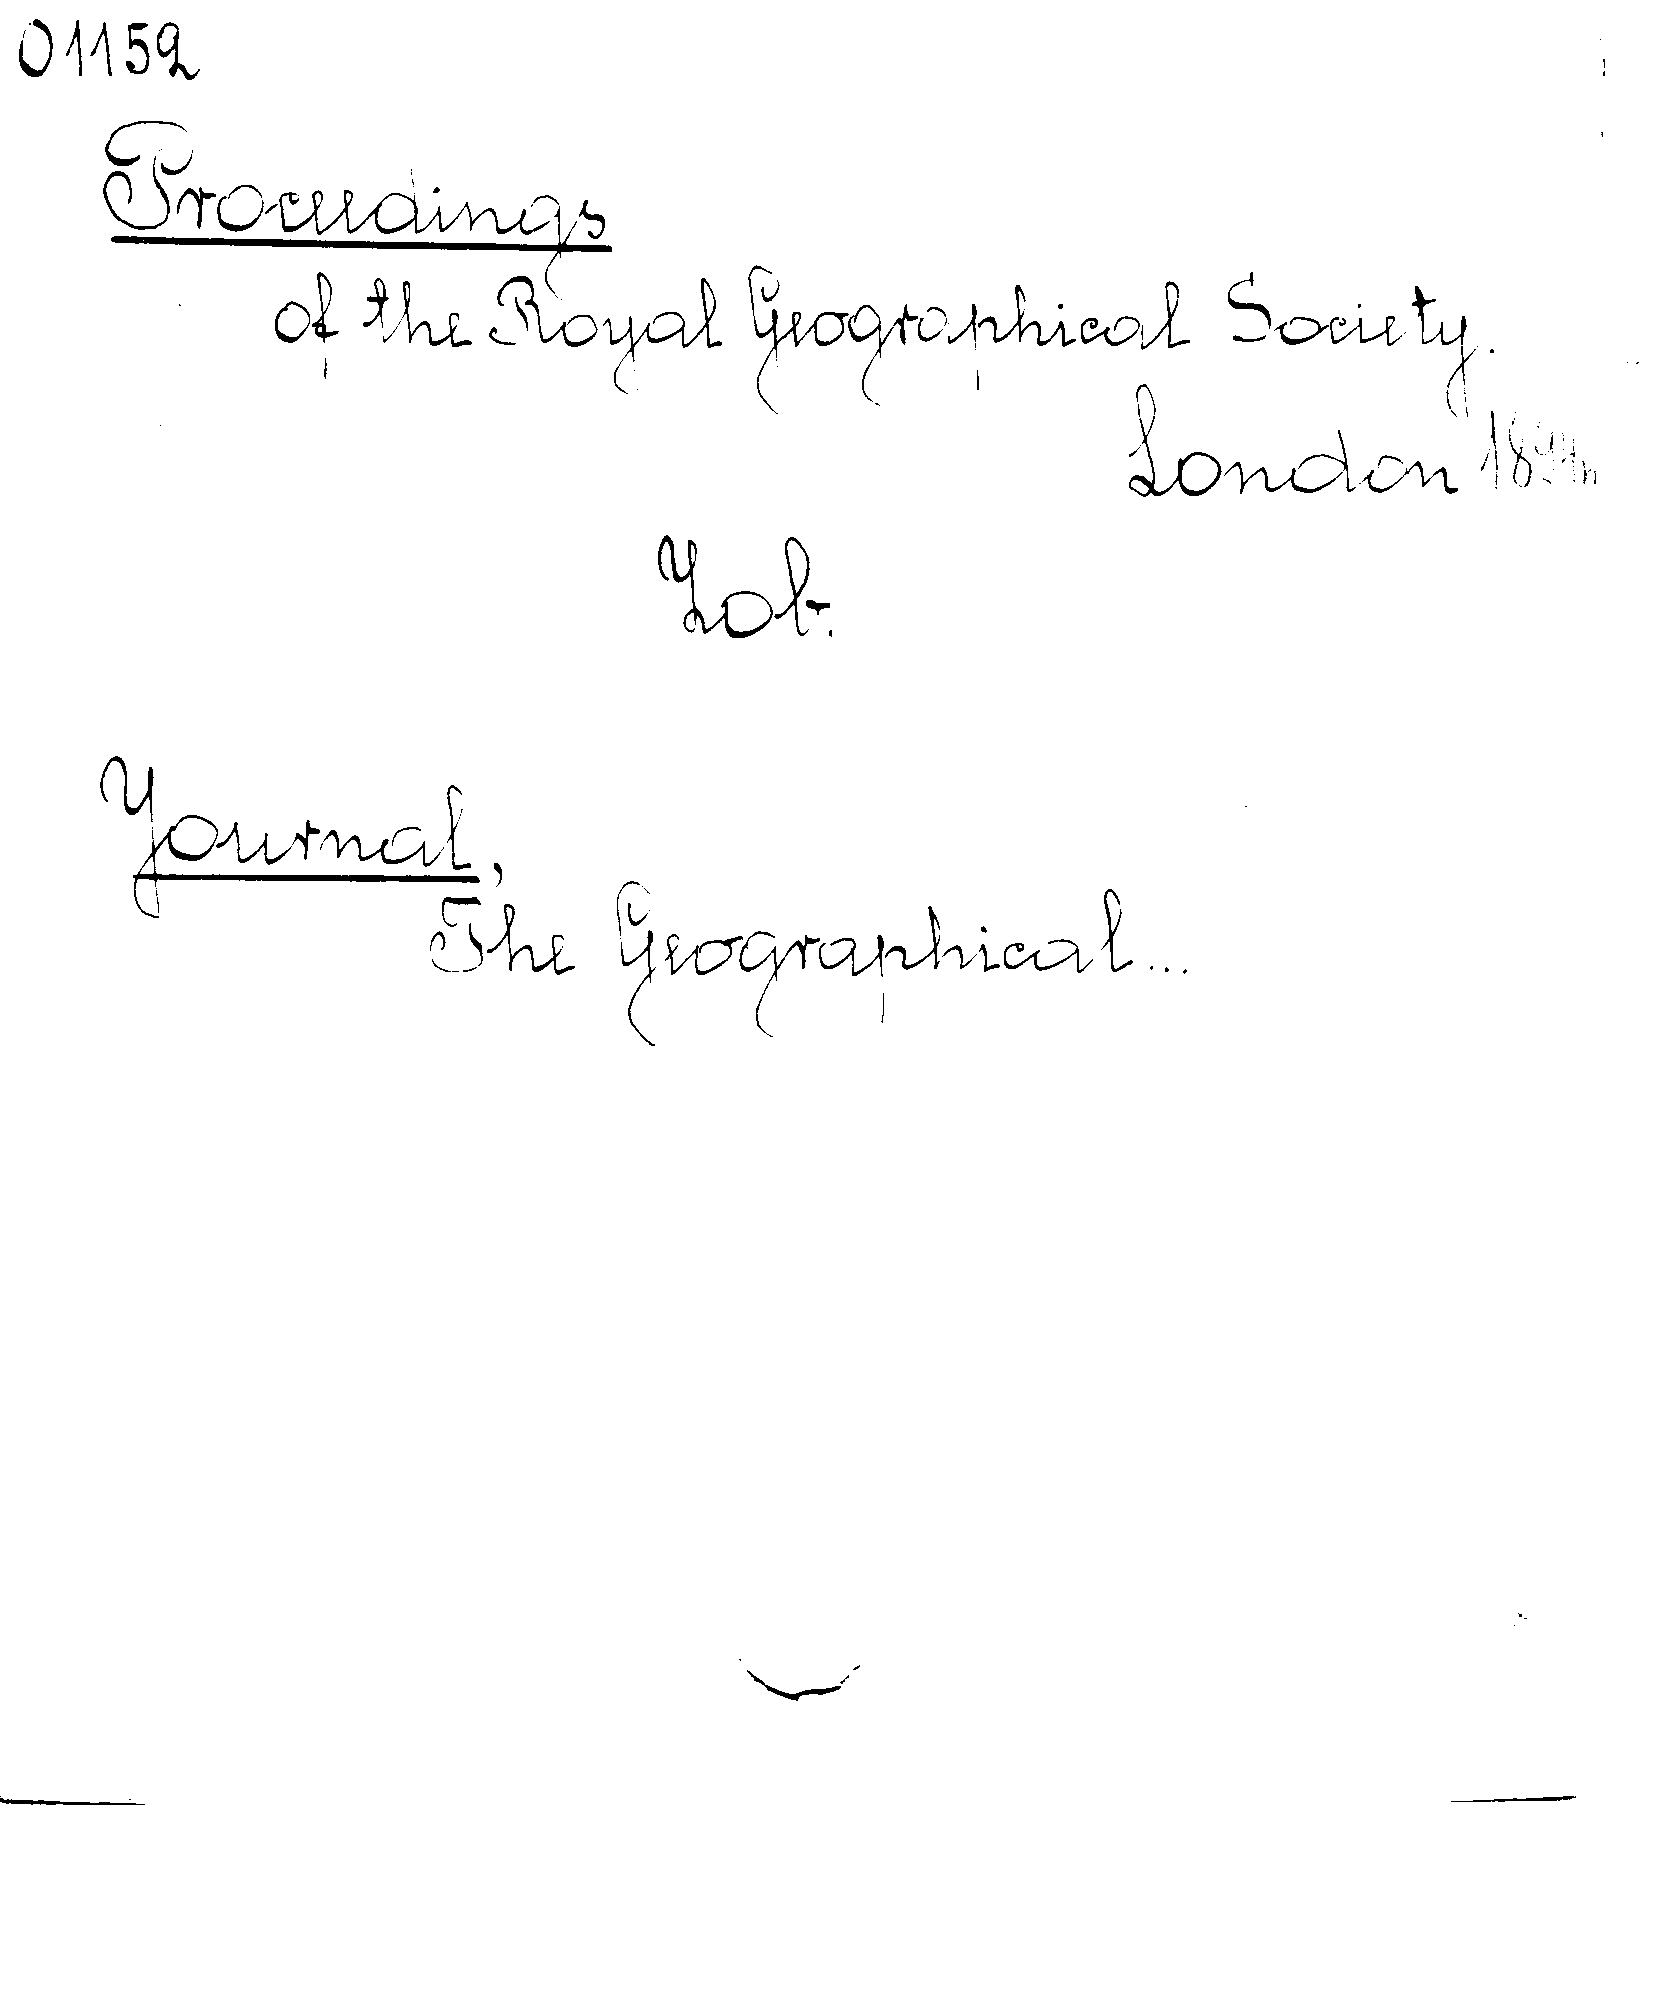 01152
Proceedings
of the Royal Geographical Society.
London
Zob.
Journal,
The Geographical...